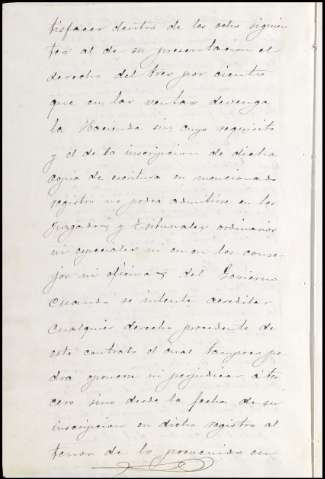 tisfacer dentro de los ocho siguien
tes al de su presentacion el
derecho del tres por ciento
que en las ventas devenga
la Hacienda sin cuyo requisito
y el de la inscripcion de dicha
copia de escritura en mencionado
registro no podra admitirse en los
Juzgados y Tribunales ordinarios
ni especiales ni en en los conse-
jos ni oficinas del Gobierno
cuando se intente acreditar
cualquier derecho procedente de
este contrato el cual tampoco po
drá oponerse ni perjudicar á ter
cero sino desde la fecha de su
inscripcion en dicho registro al
tenor de lo prevenido en